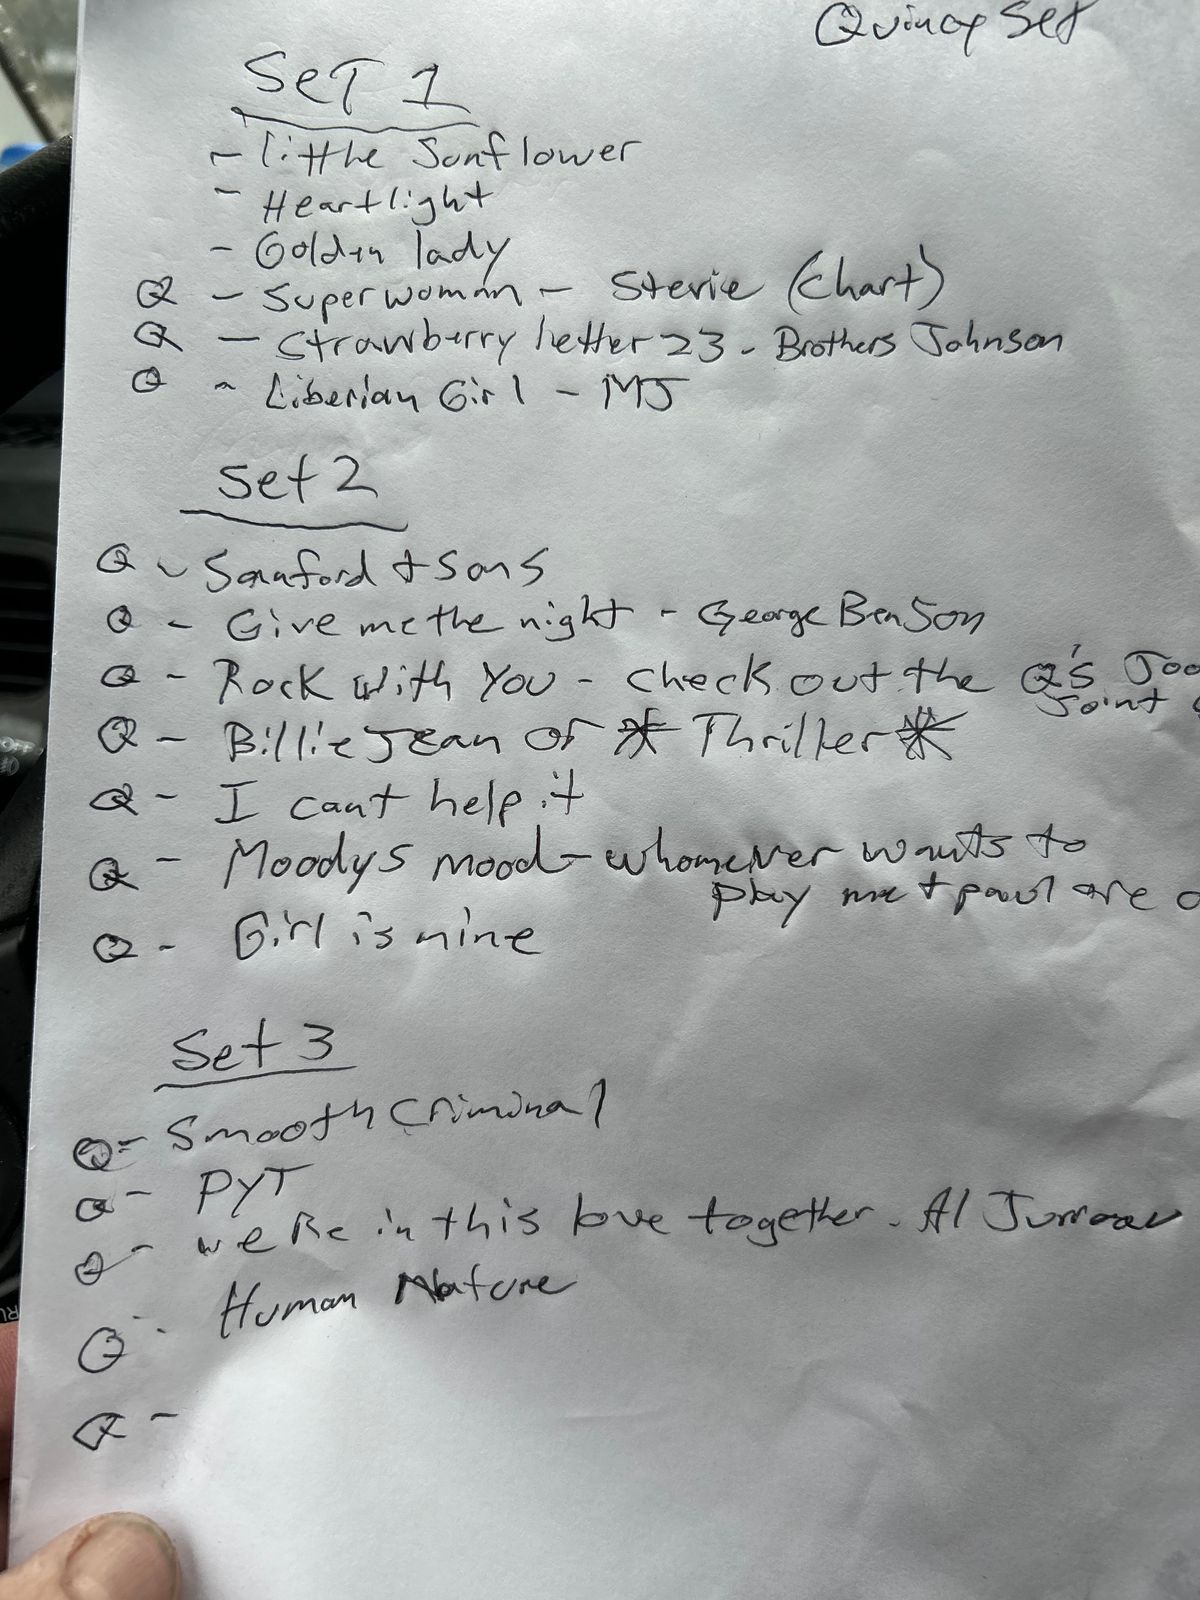 Quincy Set
SET 1
- little Sunflower
- Heartlight
- Golden lady
Q - Superwoman - Stevie (Chart)
Q - Strawberry letter 23 - Brothers Johnson
Q - Liberian Girl - MJ
Set 2
Q - Sanford + Sons
Q - Give me the night - George Benson
Q - Rock with You - check out the Q's Joo
Joint
Q - Billie Jean or * Thriller *
Q - I cant help it
Q - Moodys mood - whomever wants to
play me + paul are
Q - Girl is mine
Set 3
Q - Smooth Criminal
Q - PYT
Q - we Re in this love together. Al Jurreau
Q - Human Nature
Q -